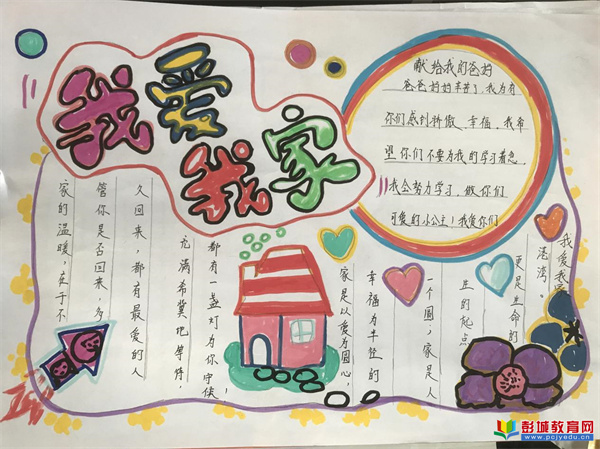 我爱
我家
献给我的爸妈
爸爸妈妈辛苦了,我为有
你们感到骄傲、幸福,我希
望你们不要为我的学习着急,
我会努力学习,做你们
可爱的小公主!我爱你们
家的温暖,在于不
管你是否回来,多
久回来,都有最爱的人
充满希冀地等待,
都有一盏灯为你守候,
家是以爱为圆心,
幸福为半径的
一个圆,家是人
生的起点
更是生命的
港湾。
我爱我家
彭城教育网
www.pcjyedu.cn